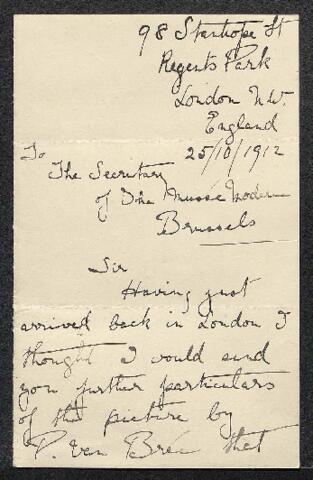 98 Stanhope St
Regents Park
London N.W.
England
25/10/1912
To
The Secretary
of The Musée Modern
Brussels
Sir
Having just
arrived back in London I
thought I would send
you further particulars
of the picture by
P. van Brée that